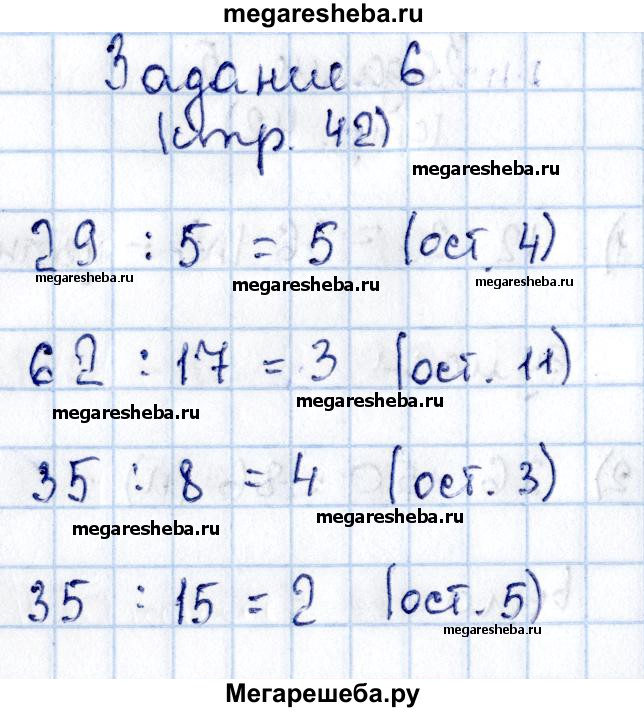 megaresheba.ru
Задание 6
(стр. 42)
megaresheba.ru
29 : 5 = 5 (ост. 4)
megaresheba.ru megaresheba.ru megaresheba.ru
62 : 17 = 3 (ост. 11)
megaresheba.ru megaresheba.ru
35 : 8 = 4 (ост. 3)
megaresheba.ru megaresheba.ru
35 : 15 = 2 (ост. 5)
megaresheba.ru
Мегарешеба.ру